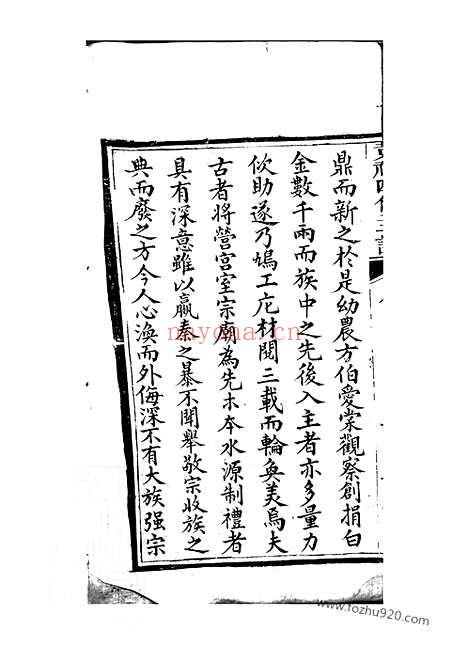 鼎而新之於是幼農方伯愛棠觀察創捐白
金數千兩而族中之先後入主者亦多量力
佽助遂乃鳩工庀材閱三載而輪奐美焉夫
古者將營宮室宗廟為先木本水源制禮者
具有深意雖以嬴秦之暴不聞舉敬宗收族之
典而廢之方今人心渙而外侮深不有大族强宗
nayona.cn
www.fozhu920.com